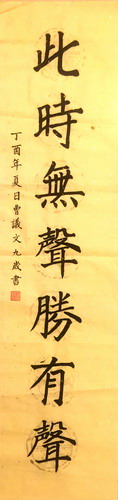 此時無聲勝有聲
丁酉年夏日曹議文九歲書